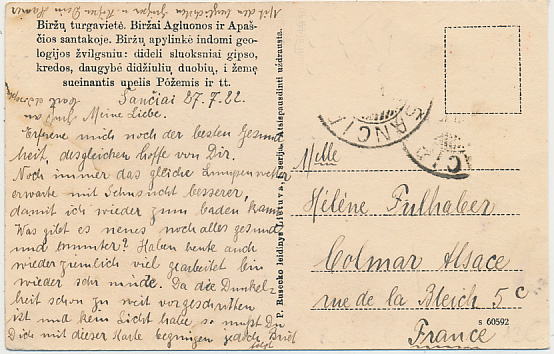 Biržų turgavietė. Biržai Agluonos ir Apaš-
čios santakoje. Biržų apylinkė įdomi geo-
logijos žvilgsniu: dideli sluoksniai gipso,
kredos, daugybė didžiulių duobių, i žemę
sueinantis upelis Požemis ir tt.
Šančiai 27.7.22.
Meine Liebe.
Erfreue mich noch der besten Gesund
heit, desgleichen hoffe von Dir.
Noch immer das gleiche Lumpenwetter
erwarte mit Sehnsucht besserer,
damit ich wieder zum baden kann
Was gibt es neues noch alles gesund
und munter? Haben heute auch
wieder ziemlich viel gearbeitet bin
wieder sehr müde. Da die Dunkel-
heit schon zu weit vorgeschritten
ist und kein Licht habe, so mußt Du
Dich mit dieser Karte begnügen jedoch Brief
folgt
P. Basecko leidiny, Lietuva, serija. Atspausdinti uždrausta.
ANCI
Melle
Hélène Fulhaber
Colmar Alsace
rue de la Bleich 5c
France
s 60592